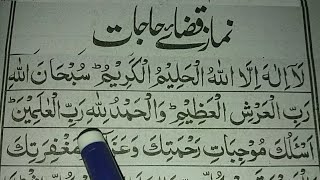 نماز قضائے حاجات
لَآ اِلٰهَ اِلَّا اللهُ الْحَلِيْمُ الْكَرِيْمُ ط سُبْحَانَ اللهِ
رَبِّ الْعَرْشِ الْعَظِيْمِ ط وَالْحَمْدُ لِلّٰهِ رَبِّ الْعٰلَمِيْنَ ط
اَسْئَلُكَ مُوْجِبَاتِ رَحْمَتِكَ وَعَزَآئِمَ مَغْفِرَتِكَ